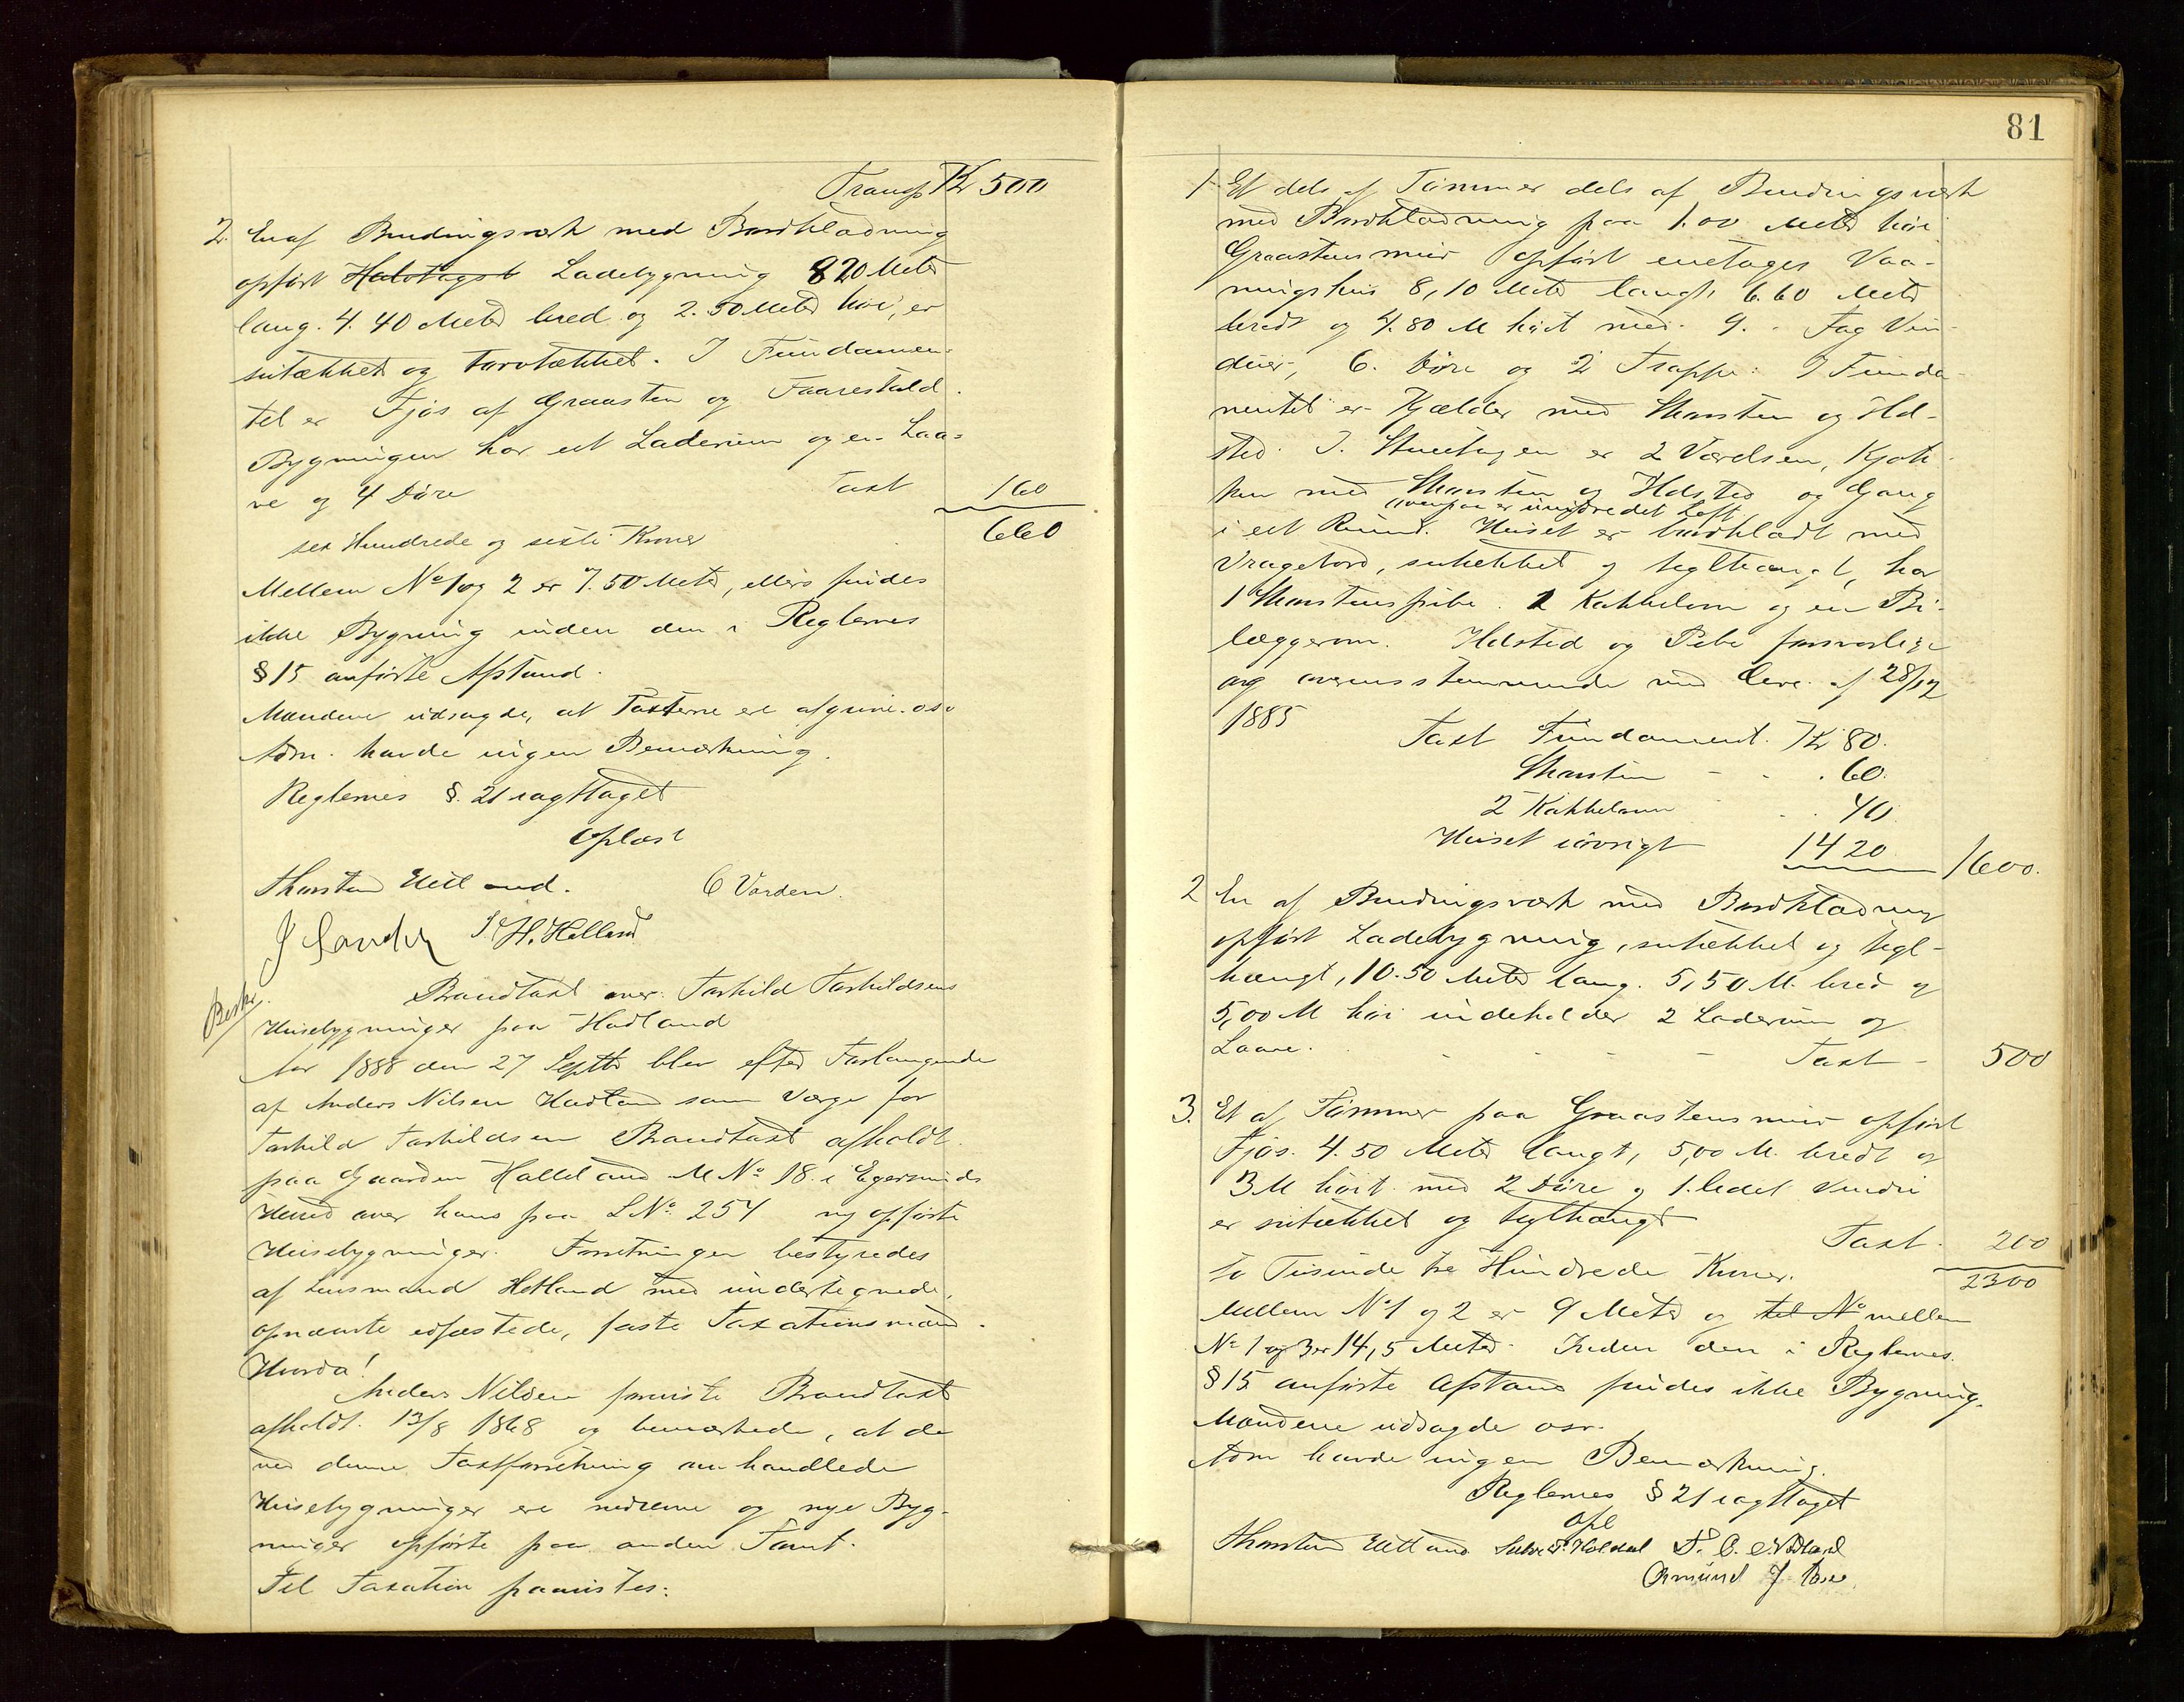 Transp Kr 500
2. En af Bindingsværk med Bordklædning
opført Halvtagst Ladebygning 820 Meter
lang. 4.40 Meter bred og 2.50 Meter høi, er
sutækket og torvtækket. I Fundamen-
tet er Fjøs af Graasten og Faarestald.
Bygningen har et Laderum og en Laa-
ve og 4 Døre Taxt 160
sex Hundrede og sexti Kroner 660
Mellem No 1 og 2 er 7.50 Meter, ellers findes
ikke Bygning inden den i Reglernes
§ 15 anførte Afstand.
Mændene udsagde, at Taxterne ere afgivne osv
havde ingen Bemærkning.
Reglernes §. 21 iagttaget
Oplæst
Thorsten Uetland. C Varden.
J H. Helland
Besk.
Brandtaxt over Torkild Torkildsens
Husebygninger paa Hadland
Aar 1888 den 27 Septbr blev efter Forlangende
af Anders Nilsen Hadland som Værge for
Torkild Torkildsen Brandtaxt afholdt
paa Gaarden Halleland M No 18. i Egersunds
Herred over hans paa LNo 254 ny opførte
Husebygninger. Forretningen bestyredes
af Lensmand Hetland med undertegnede,
opnævnte edfæstede, faste Taxationsmænd.
Hvorda!
Anders Nilsen foreviste Brandtaxt
afholdt 13/8 1868 og bemærkede, at de
ved denne Taxtforretning omhandlede
Husebygninger ere nedrevne og nye Byg-
ninger opførte paa anden Tomt.
Til Taxation paavistes:
81
1 Et dels af Tømmer dels af Bindingsværk
med Bordklædning paa 1.00 Meter høi
Graastensmur opført enetages Vaa-
ningshus 8,10 Meter langt, 6.60 Meter
bredt og 4.80 M høit med 9. Fag Vin-
duer, 6. Døre og 2 Trappe: I Funda-
mentet er Kjælder med Skorsten og Ild-
sted. I. Stueetagen er 2 Værelser, Kjøk-
ken med Skorsten og Ildsted og Gang
ovenpaa er uindredet Loft
i et Rum. Huset er bordklædt med
Vragebord, sutækket og teglhængt, har
1 Skorstenspibe. 2 Kakkelovn og en Bi-
læggerovn. Ildsted og Pibe forsvarlige
og overensstemmende med Lov af 28/12
1885
Taxt Fundament. Kr 80.
Skorsten - - . 60.
2 Kakkelovn . . 40
Huset iøvrigt 1420 1600.
2 En af Bindingsværk med Bordklædning
opført Ladebygning, sutækket og tegl-
hængt, 10.50 Meter lang. 5,50 M. bred og
5,00 M høi indeholder 2 Laderum og
Laave. - - - - Taxt - 500
3. Et af Tømmer paa Graastensmur opført
Fjøs. 4.50 Meter langt, 5,00 M. bredt og
3 M høit med 2 Døre og 1. ledet Vindu
er sutækket og teglhængt
Taxt. 200
to Tusinde tre Hundrede Kroner. 2300
Mellem No 1 og 2 er 9 Meter og til No mellem
No 1 og 3 er 14,5 Meter. Inden den i Reglernes
§ 15 anførte Afstand findes ikke Bygning.
Mændene udsagde osv.
havde ingen Bemærkning.
Reglernes § 21 iagttaget
Opl
Thorsten Uetland